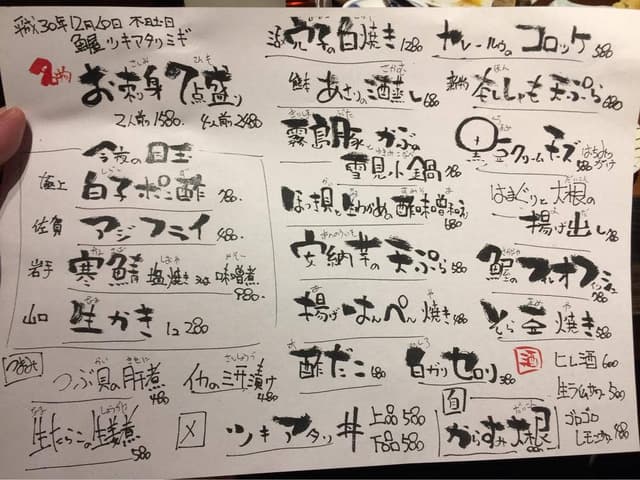 平成30年12月20日 木曜日
ツキアタリミギ
お刺身7点盛り
2人前1580. 4人前2480
今夜の目玉
極上 白子ポン酢 780.
佐賀 アジフライ 480.
岩手 寒鯖 塩焼き or 味噌煮 980.
山口 生かき 1コ 280
つまみ
つぶ貝の肝煮 480
イカの三升漬け 480
生たらこの生姜煮 580
穴子の白焼き 1280
あさりの酒蒸し 680
霧島豚とかぶの
雪見小鍋 780
ほっき貝と生わかめの酢味噌和え 680
安納芋の天ぷら 580
揚げはんぺん焼き 480
酢だこ 480
白ガリセロリ 380
〆 ツキアタリ丼 上品580 下品580
カレールウのコロッケ 580
本ししゃも天ぷら 680
クリームチーズ はちみつがけ
はまぐりと大根の
揚げ出し
そら豆焼き 580
酒 ヒレ酒 600
からすみ大根
ゴロゴロ
レモンサワー